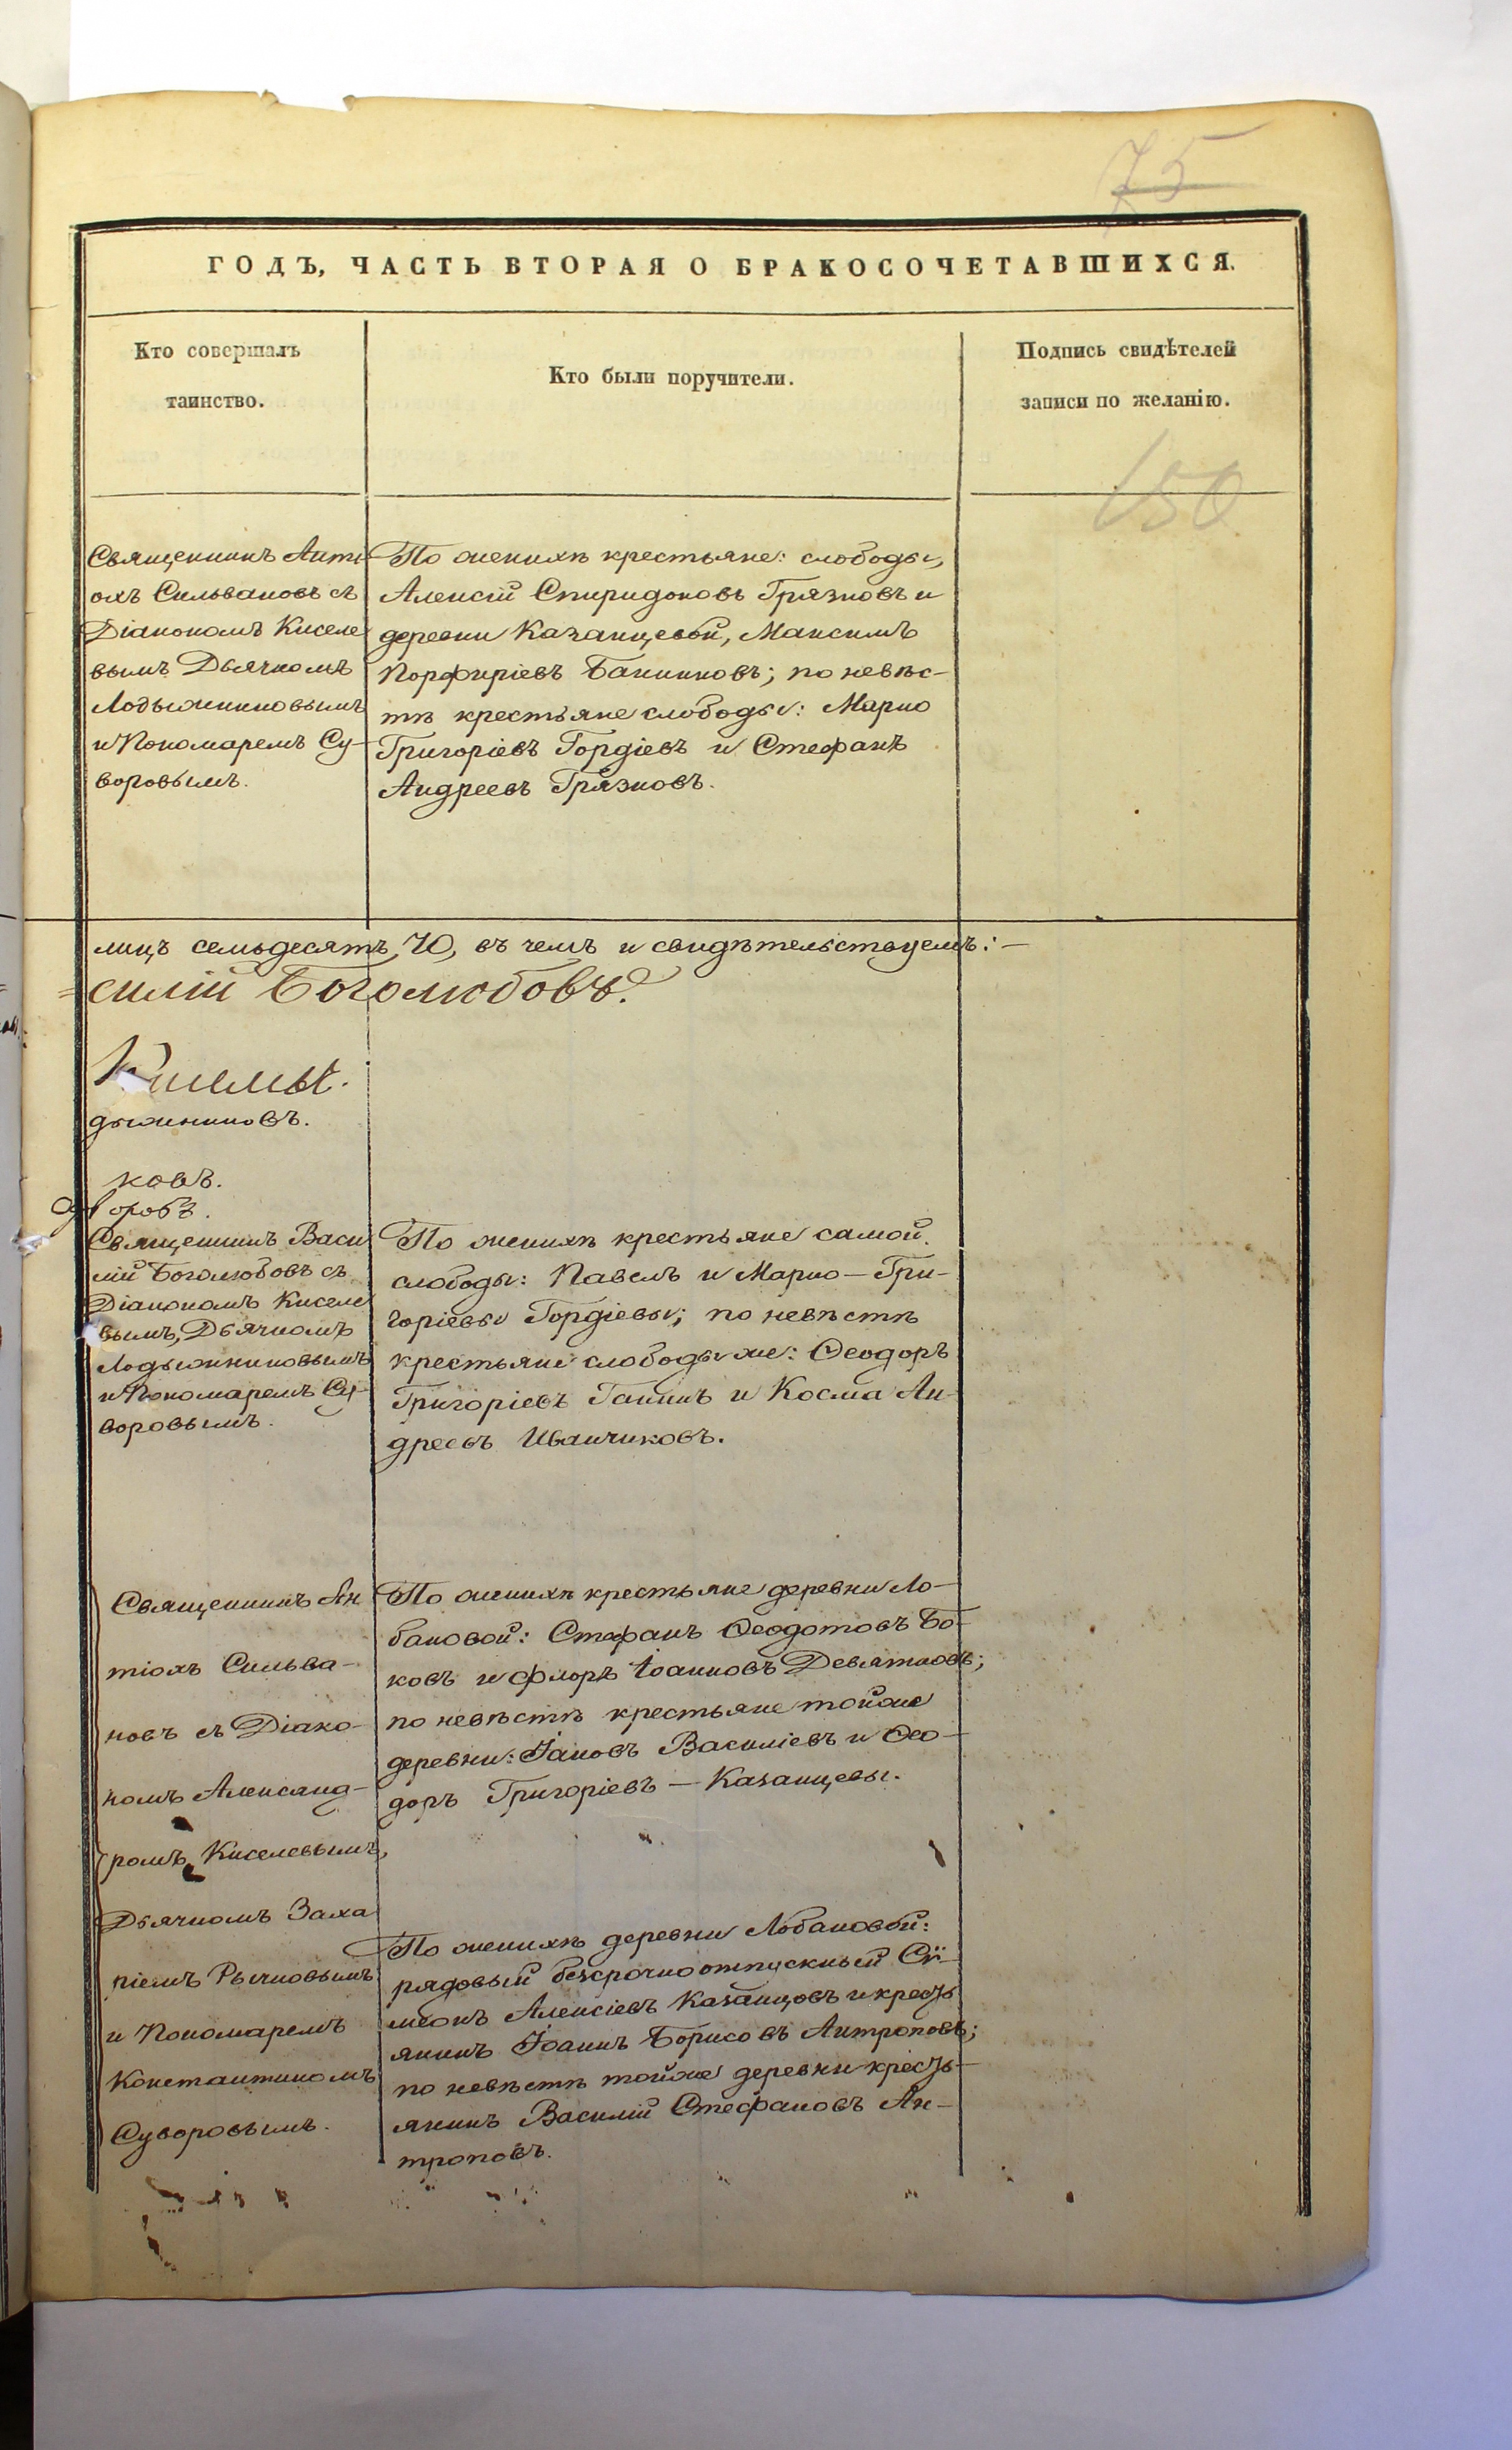 75
ГОДЪ, ЧАСТЬ ВТОРАЯ О БРАКОСОЧЕТАВШИХСЯ.
Кто совершалъ
таинство.
Кто были поручители.
Подпись свидѣтелей
записи по желанію.
150
Священникъ Анти
охъ Сильвановъ съ
Діакономъ Киселе
вымъ Дьячкомъ
Лодыжниковымъ
и Пономаремъ Су-
воровымъ.
По женихѣ крестьяне: слободы,
Алексій Спиридоновъ Грязновъ и
деревни Казанцевой, Максимъ
Порфиріевъ Банниковъ; по невѣс-
тѣ крестьяне слободы: Марко
Григоріевъ Гордіевъ и Стефанъ
Андреевъ Грязновъ.
лицъ семьдесятъ, 70, въ чемъ и свидѣтельствуемъ:-
силій Боголюбовъ.
дыжниковъ.
ковъ.
воровъ.
Священникъ Васи
лій Боголюбовъ съ
Діакономъ Киселе
вымъ, Дьячкомъ
Лодыжниковымъ
и Пономаремъ Су-
воровымъ.
По женихѣ крестьяне самой
слободы: Павелъ и Марко - Гри-
горіевы Гордіевы; по невѣстѣ
крестьяне слободы же: Ѳеодоръ
Григоріевъ Ганинъ и Косма Ан-
дреевъ Иванчиковъ.
Священникъ Ан
тіохъ Сильва-
новъ съ Діако-
номъ Александ-
ромъ Киселевымъ,
Дьячкомъ Заха
ріемъ Рычковымъ
и Пономаремъ
Константиномъ
Суворовымъ.
По женихѣ крестьяне деревни Ло-
бановой: Стефанъ Ѳеодотовъ Бо-
ковъ и Флоръ Іоанновъ Девятковъ;
по невѣстѣ крестьяне тойже
деревни: Іаковъ Василіевъ и Ѳео-
доръ Григоріевъ - Казанцевы.
По женихѣ деревни Лобановой:
рядовый безсрочноотпускный Сѵ-
меонъ Алексіевъ Казанцовъ и кресть
янинъ Іоаннъ Борисовъ Антроповъ;
по невѣстѣ тойже деревни кресть-
янинъ Василій Стефановъ Ан-
троповъ.